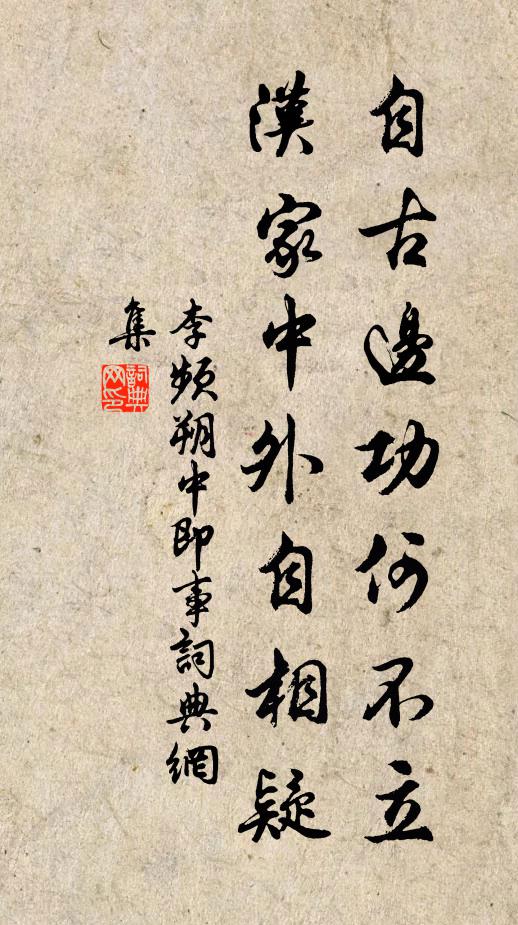 自古邊功何不立
漢家中外自相疑
李頻朔中即事詞典網
集
詞典
网印